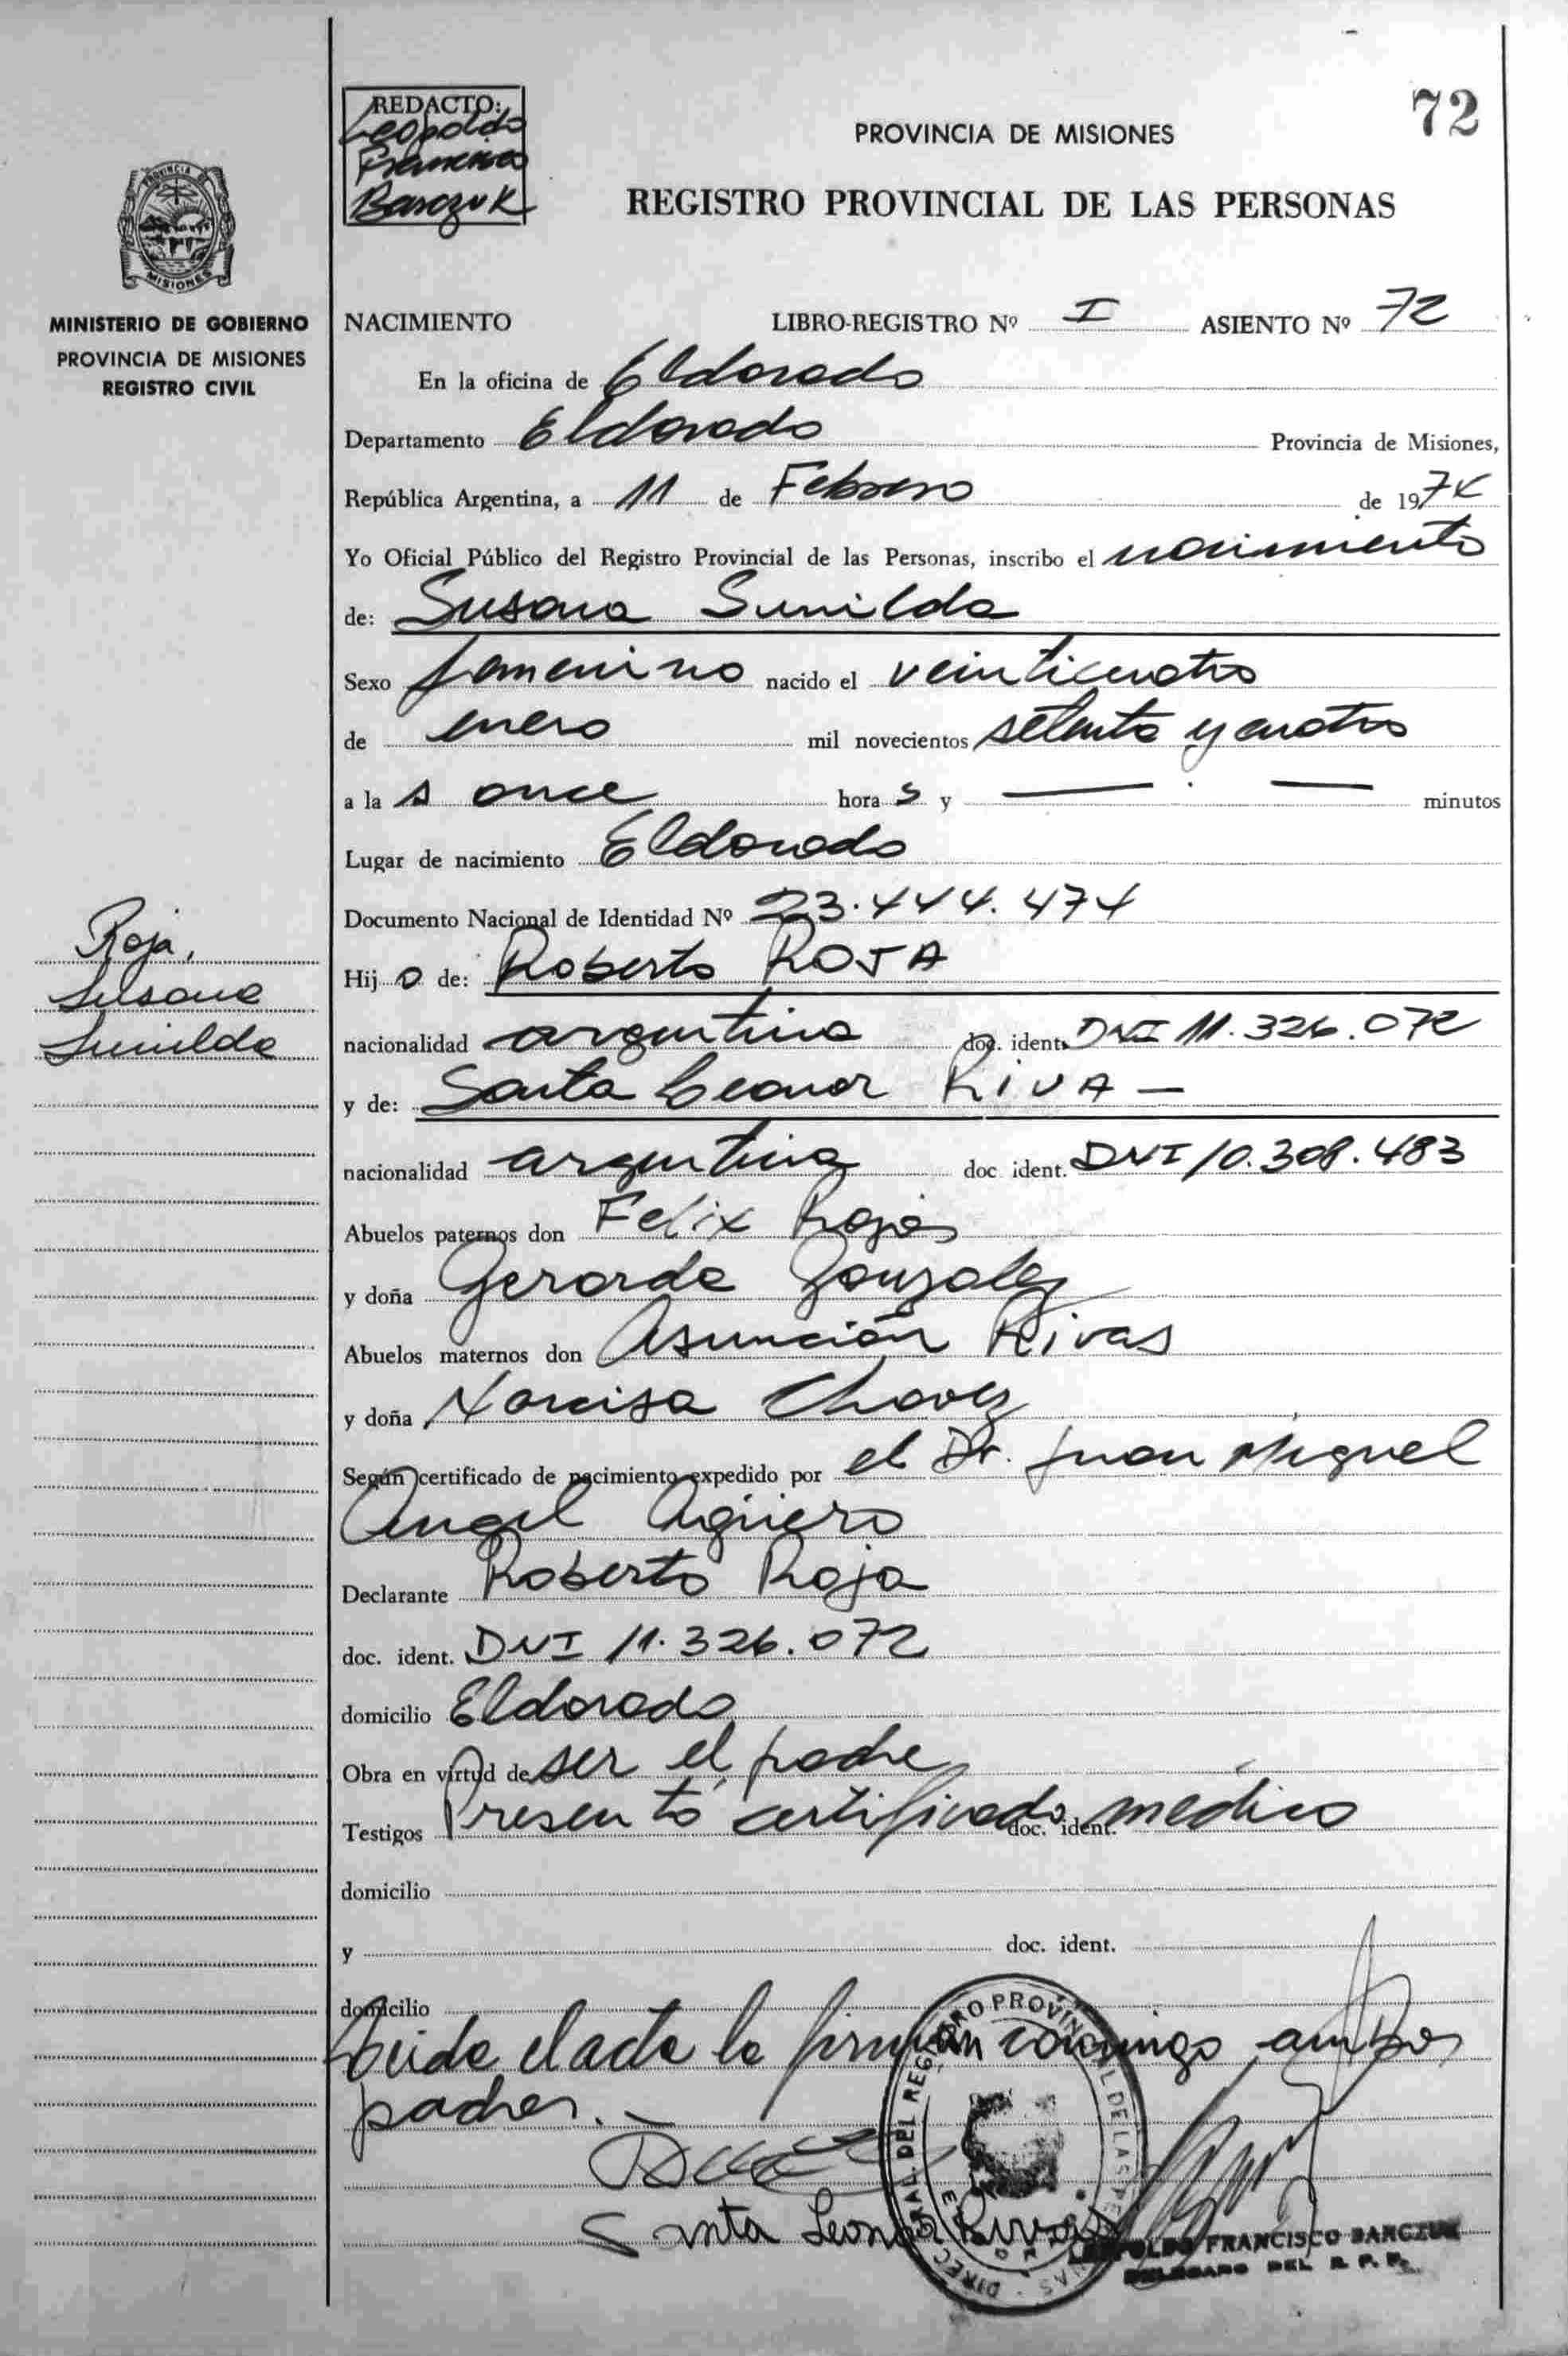 72
REDACTO:
Leopoldo
Francisco
Barczuk
PROVINCIA DE MISIONES
REGISTRO PROVINCIAL DE LAS PERSONAS
PROVINCIA DE
MISIONES
MINISTERIO DE GOBIERNO
PROVINCIA DE MISIONES
REGISTRO CIVIL
NACIMIENTO LIBRO-REGISTRO Nº I ASIENTO Nº 72
En la oficina de Eldorado
Departamento Eldorado Provincia de Misiones,
República Argentina, a 11 de Febrero de 1974
Yo Oficial Público del Registro Provincial de las Personas, inscribo el nacimiento
de: Susana Sunilda
Sexo femenino nacido el veinticuatro
de enero mil novecientos setenta y cuatro
a la s once hora s y — . — minutos
Lugar de nacimiento Eldorado
Documento Nacional de Identidad Nº 23.444.474
Roja,
Susana
Sunilda
Hij a de: Roberto ROJA
nacionalidad argentina doc. ident. DNI 11.326.072
y de: Santa Leonor RIVA —
nacionalidad argentina doc ident. DNI 10.308.483
Abuelos paternos don Felix Rojas
y doña Gerarda Gonzalez
Abuelos maternos don Asunción Rivas
y doña Narcisa Chavez
Según certificado de nacimiento expedido por el Dr. Juan Miguel
Angel Agüero
Declarante Roberto Roja
doc. ident. DNI 11.326.072
domicilio Eldorado
Obra en virtud de ser el padre
Testigos Presentó certificado doc. ident. médico
domicilio
y doc. ident.
domicilio
Leida el acta la firman conmigo ambos
padres. —
Santa Leonor Rivas
LEOPOLDO FRANCISCO BARCZUK
DELEGADO DEL R. P. P.